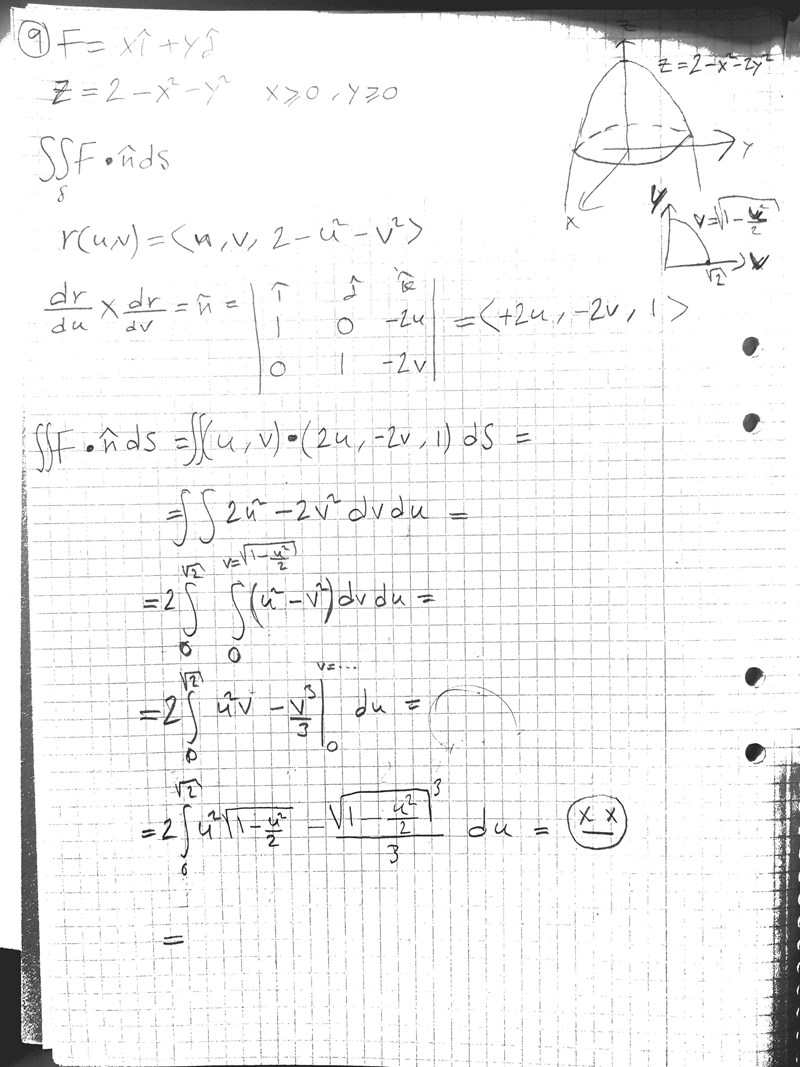 ⑨ F = xî + yĵ
z = 2 - x² - y²   x ≥ 0, y ≥ 0
∬_S F • n̂ ds
r(u,v) = ⟨u, v, 2 - u² - v²⟩
z
z = 2 - x² - 2y²
y
x
v
v = √(1 - u²/2)
√2
dr/du × dr/dv = n̂ = | î ĵ k̂ |
| 1 0 -2u | = ⟨+2u, -2v, 1⟩
| 0 1 -2v |
∬ F • n̂ dS = ∬(u, v) • (2u, -2v, 1) dS =
= ∫∫ 2u² - 2v² dv du =
= 2 ∫_0^√2 ∫_0^{v=√(1 - u²/2)} (u² - v²) dv du =
= 2 ∫_0^√2 u²v - v³/3 |_0^{v=...} du =
= 2 ∫_0^√2 u²√(1 - u²/2) - √(1 - u²/2)³/3 du = (x x)
=